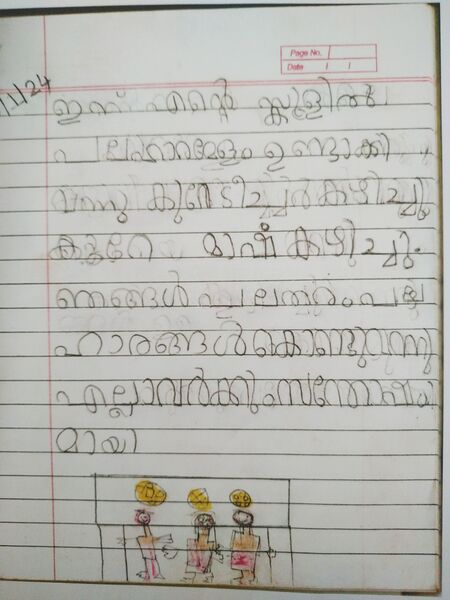 Page No.
Date / /
/1/24
ഇന്ന് എന്റെ സ്കൂളിൽ
പലഹാരമേളം ഉണ്ടാക്കി.
വന്നു കുറേ ടീച്ചർ കഴിച്ചു
കുറേ മാഷ് കഴിച്ചു.
ഞങ്ങൾ പലതരം പല
ഹാരങ്ങൾ കൊണ്ടുവന്നു
എല്ലാവർക്കും സന്തോഷം
മായി